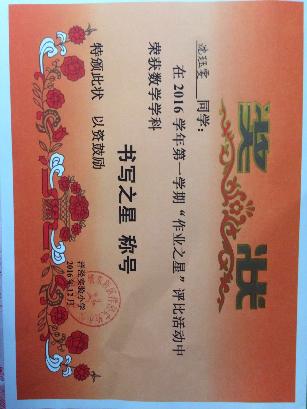 奖状
同学:
在2016学年第一学期“作业之星”评比活动中
荣获数学学科
书写之星 称号
特颁此状 以资鼓励
实验小学
2016年12月